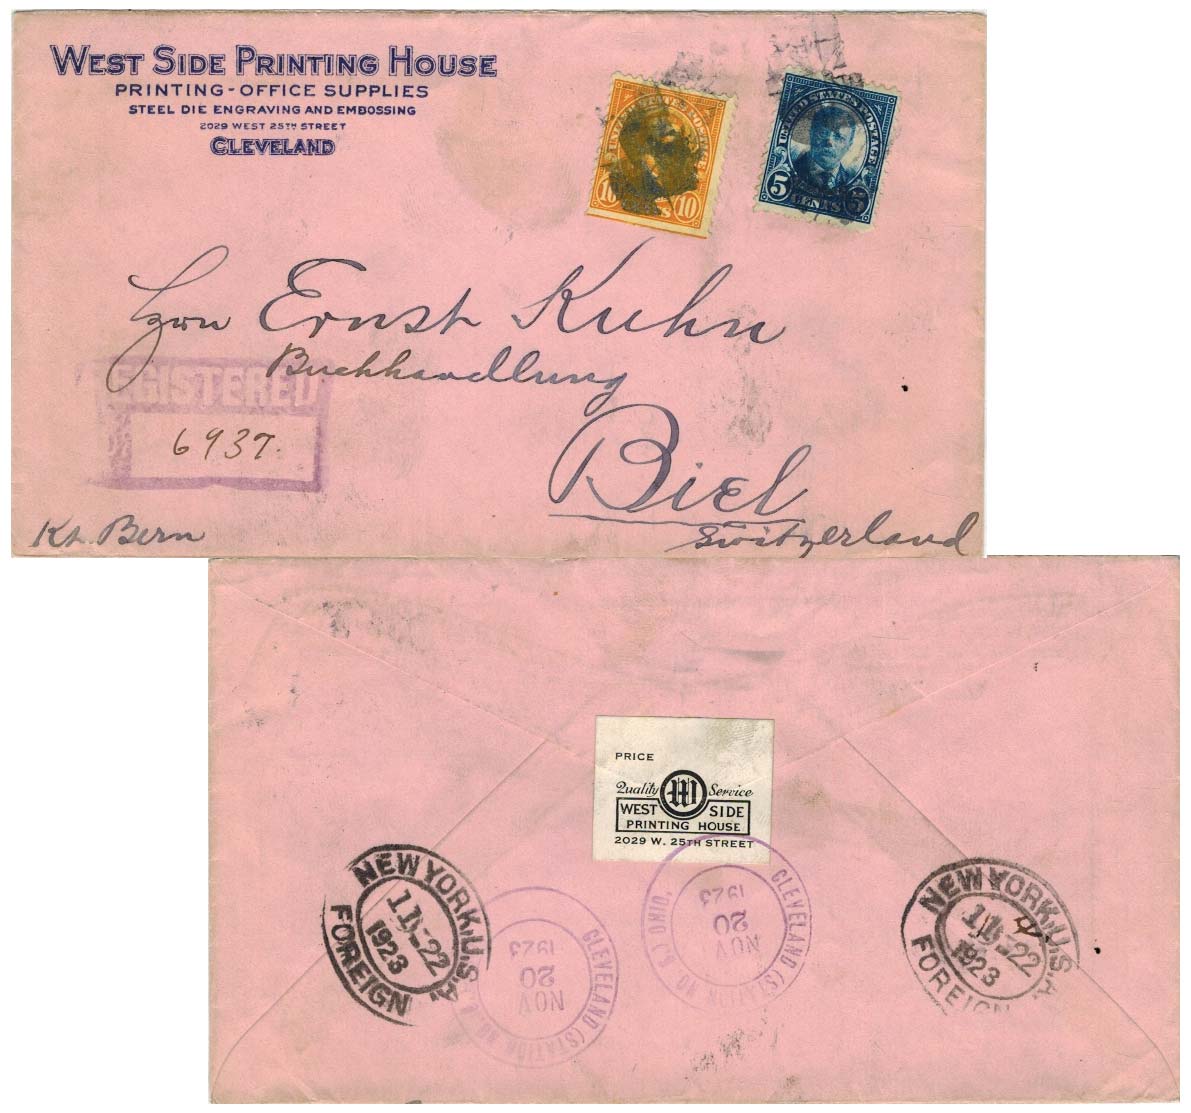 WEST SIDE PRINTING HOUSE
PRINTING - OFFICE SUPPLIES
STEEL DIE ENGRAVING AND EMBOSSING
2029 WEST 25TH STREET
CLEVELAND
10 10
UNITED STATES POSTAGE
5 CENTS 5
Hrn Ernst Kuhn
Buchhandlung
Biel
Switzerland
REGISTERED
6937.
Kt. Bern
PRICE
Quality W Service
WEST SIDE
PRINTING HOUSE
2029 W. 25TH STREET
NEW YORK, U.S.A.
11-22
1923
FOREIGN
CLEVELAND (STATION NO.
NOV
20
1923
CLEVELAND (STATION NO. OHIO,
NOV
20
1923
NEW YORK, U.S.A.
11-22
1923
FOREIGN